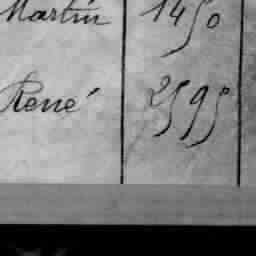 Martin 1450
René 2595